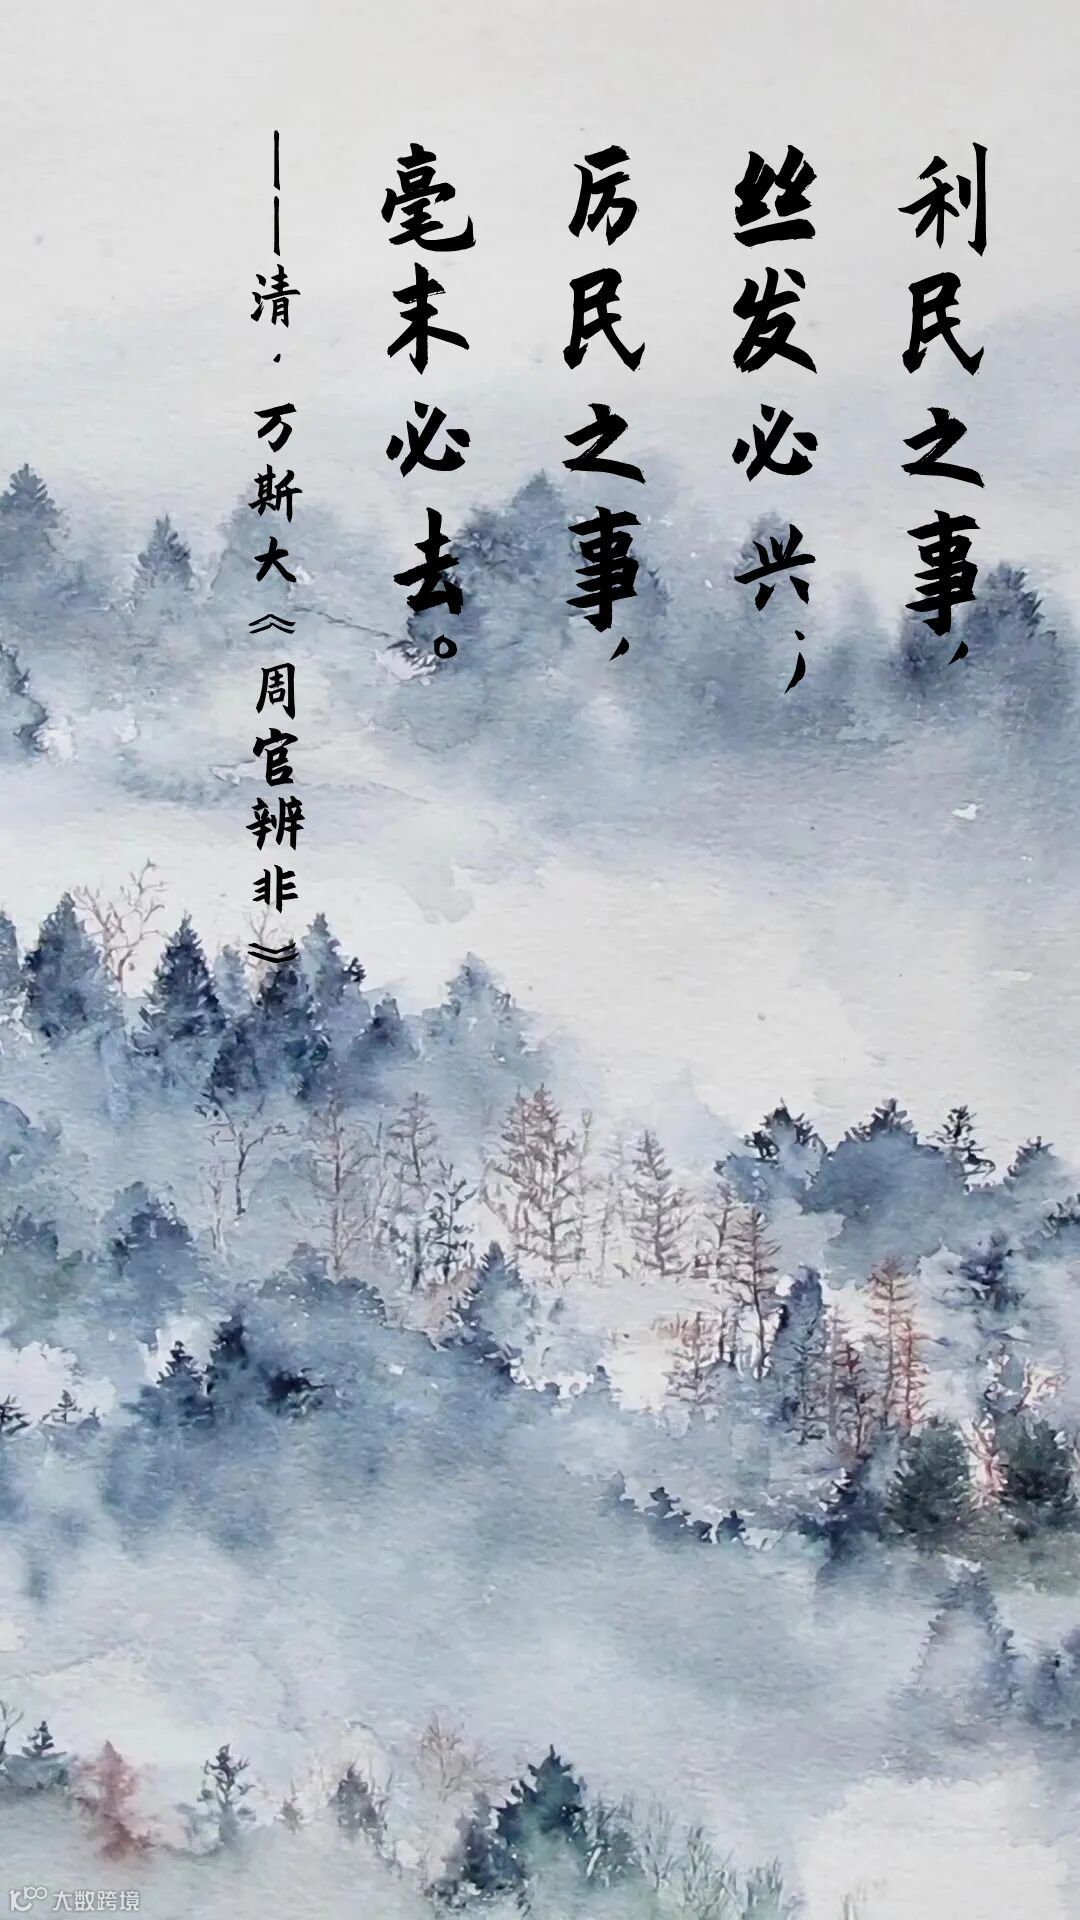 利民之事，
丝发必兴；
厉民之事，
毫末必去。
——清·万斯大《周官辨非》
大数跨境